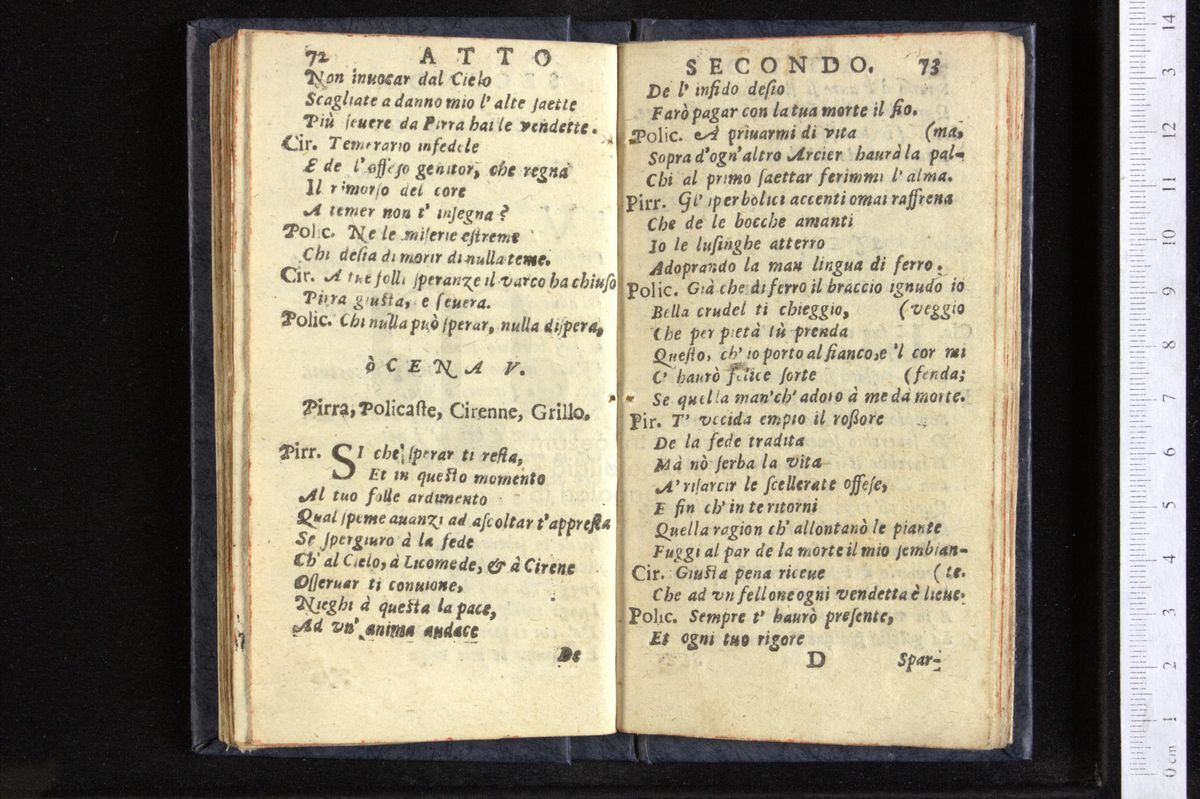 72 ATTO
Non inuocar dal Cielo
Scagliate a danno mio l' alte saette
Più seuere da Pirra hai le vendette.
Cir. Temerario infedele
E de l'offeso genitor, che regna
Il rimorso del core
A temer non t' insegna?
Polic. Ne le miserie estreme
Chi desia di morir di nulla teme.
Cir. A tue folli speranze il varco ha chiuso
Pirra giusta, e seuera.
Polic. Chi nulla può sperar, nulla dispera,
òCENA V.
Pirra, Policaste, Cirenne, Grillo.
Pirr. SI che sperar ti resta,
Et in questo momento
Al tuo folle ardimento
Qual speme auanzi ad ascoltar t'appresta
Se spergiuro à la fede
Ch' al Cielo, à Licomede, & à Cirene
Osseruar ti conuione,
Nieghi à questa la pace,
Ad vn' anima audace
De
SECONDO. 73
De l' infido desio
Farò pagar con la tua morte il fio.
Polic. A priuarmi di vita (ma,
Sopra d'ogn'altro Arcier haurà la pal-
Chi al primo saettar ferimmi l' alma.
Pirr. Gl' iperbolici accenti omai raffrena
Che de le bocche amanti
Io le lusinghe atterro
Adoprando la man lingua di ferro.
Polic. Già che di ferro il braccio ignudo io
Bella crudel ti chieggio, (veggio
Che per pietà tù prenda
Questo, ch' io porto al fianco, e 'l cor mi
C' haurò felice sorte (fenda;
Se quella man'ch' adoro à me da morte.
Pir. T' vccida empio il rossore
De la fede tradita
Mà nò serba la vita
A' risarcir le scellerate offese,
E fin ch' in te ritorni
Quella ragion ch' allontanò le piante
Fuggi al par de la morte il mio sembian-
Cir. Giusta pena riceue (te.
Che ad vn fellone ogni vendetta è lieue.
Polic. Sempre t' haurò presente,
Et ogni tuo rigore
D Spar-